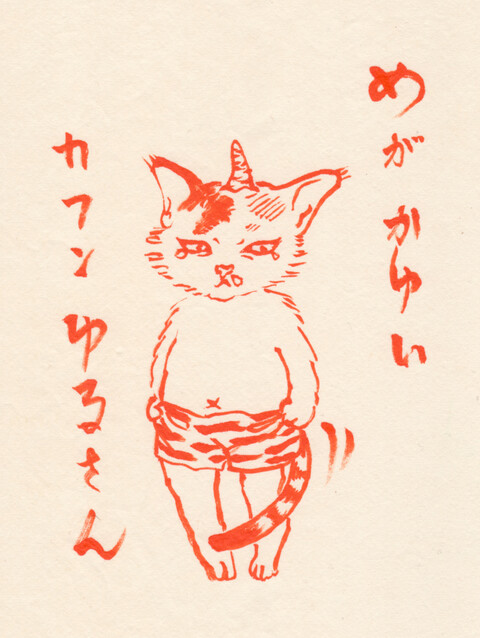 めが かゆい
カフン ゆるさん